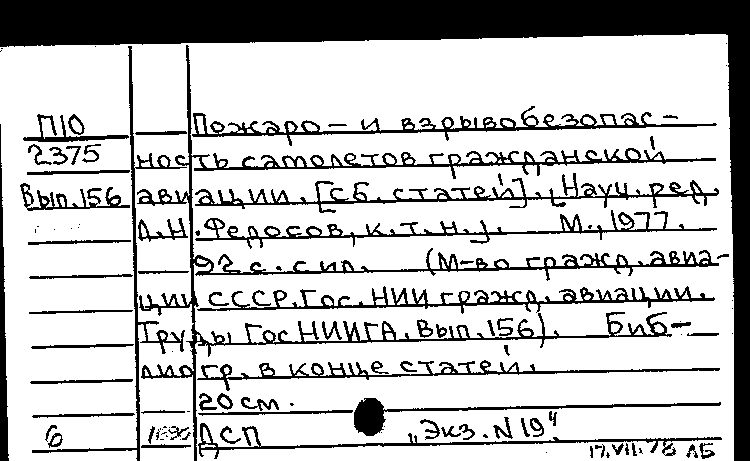 П10 Пожаро- и взрывобезопас-
2375 ность самолетов гражданской
Вып.156 авиации. [Сб. статей]. [Науч. ред.
Л.Н. Федосов, к.т.н.]. М., 1977.
92 с. с ил. (М-во гражд. авиа-
ции СССР. Гос. НИИ гражд. авиации.
Труды ГосНИИГА. Вып. 156). Биб-
лиогр. в конце статей.
20 см.
6 ДСП "Экз. N 19"
17.VII.78 ЛБ